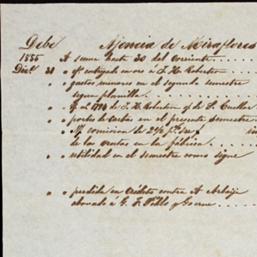 Debe Agencia de Miraflores
1886 A saver hasta 30 del Corriente
Dic.e 31 " entregado en oro a J. H. Robertson
" gastos menores en el segundo semestre
segun planilla
de J. H. Robertson y de P. Cuellar
" portes de cartas en el presente semestre
comision de 2½ p% s/
de las ventas en la fábrica
" utilidad en el semestre como sigue
" perdida en crédito contra A.
abonado a G. F. Pablo y